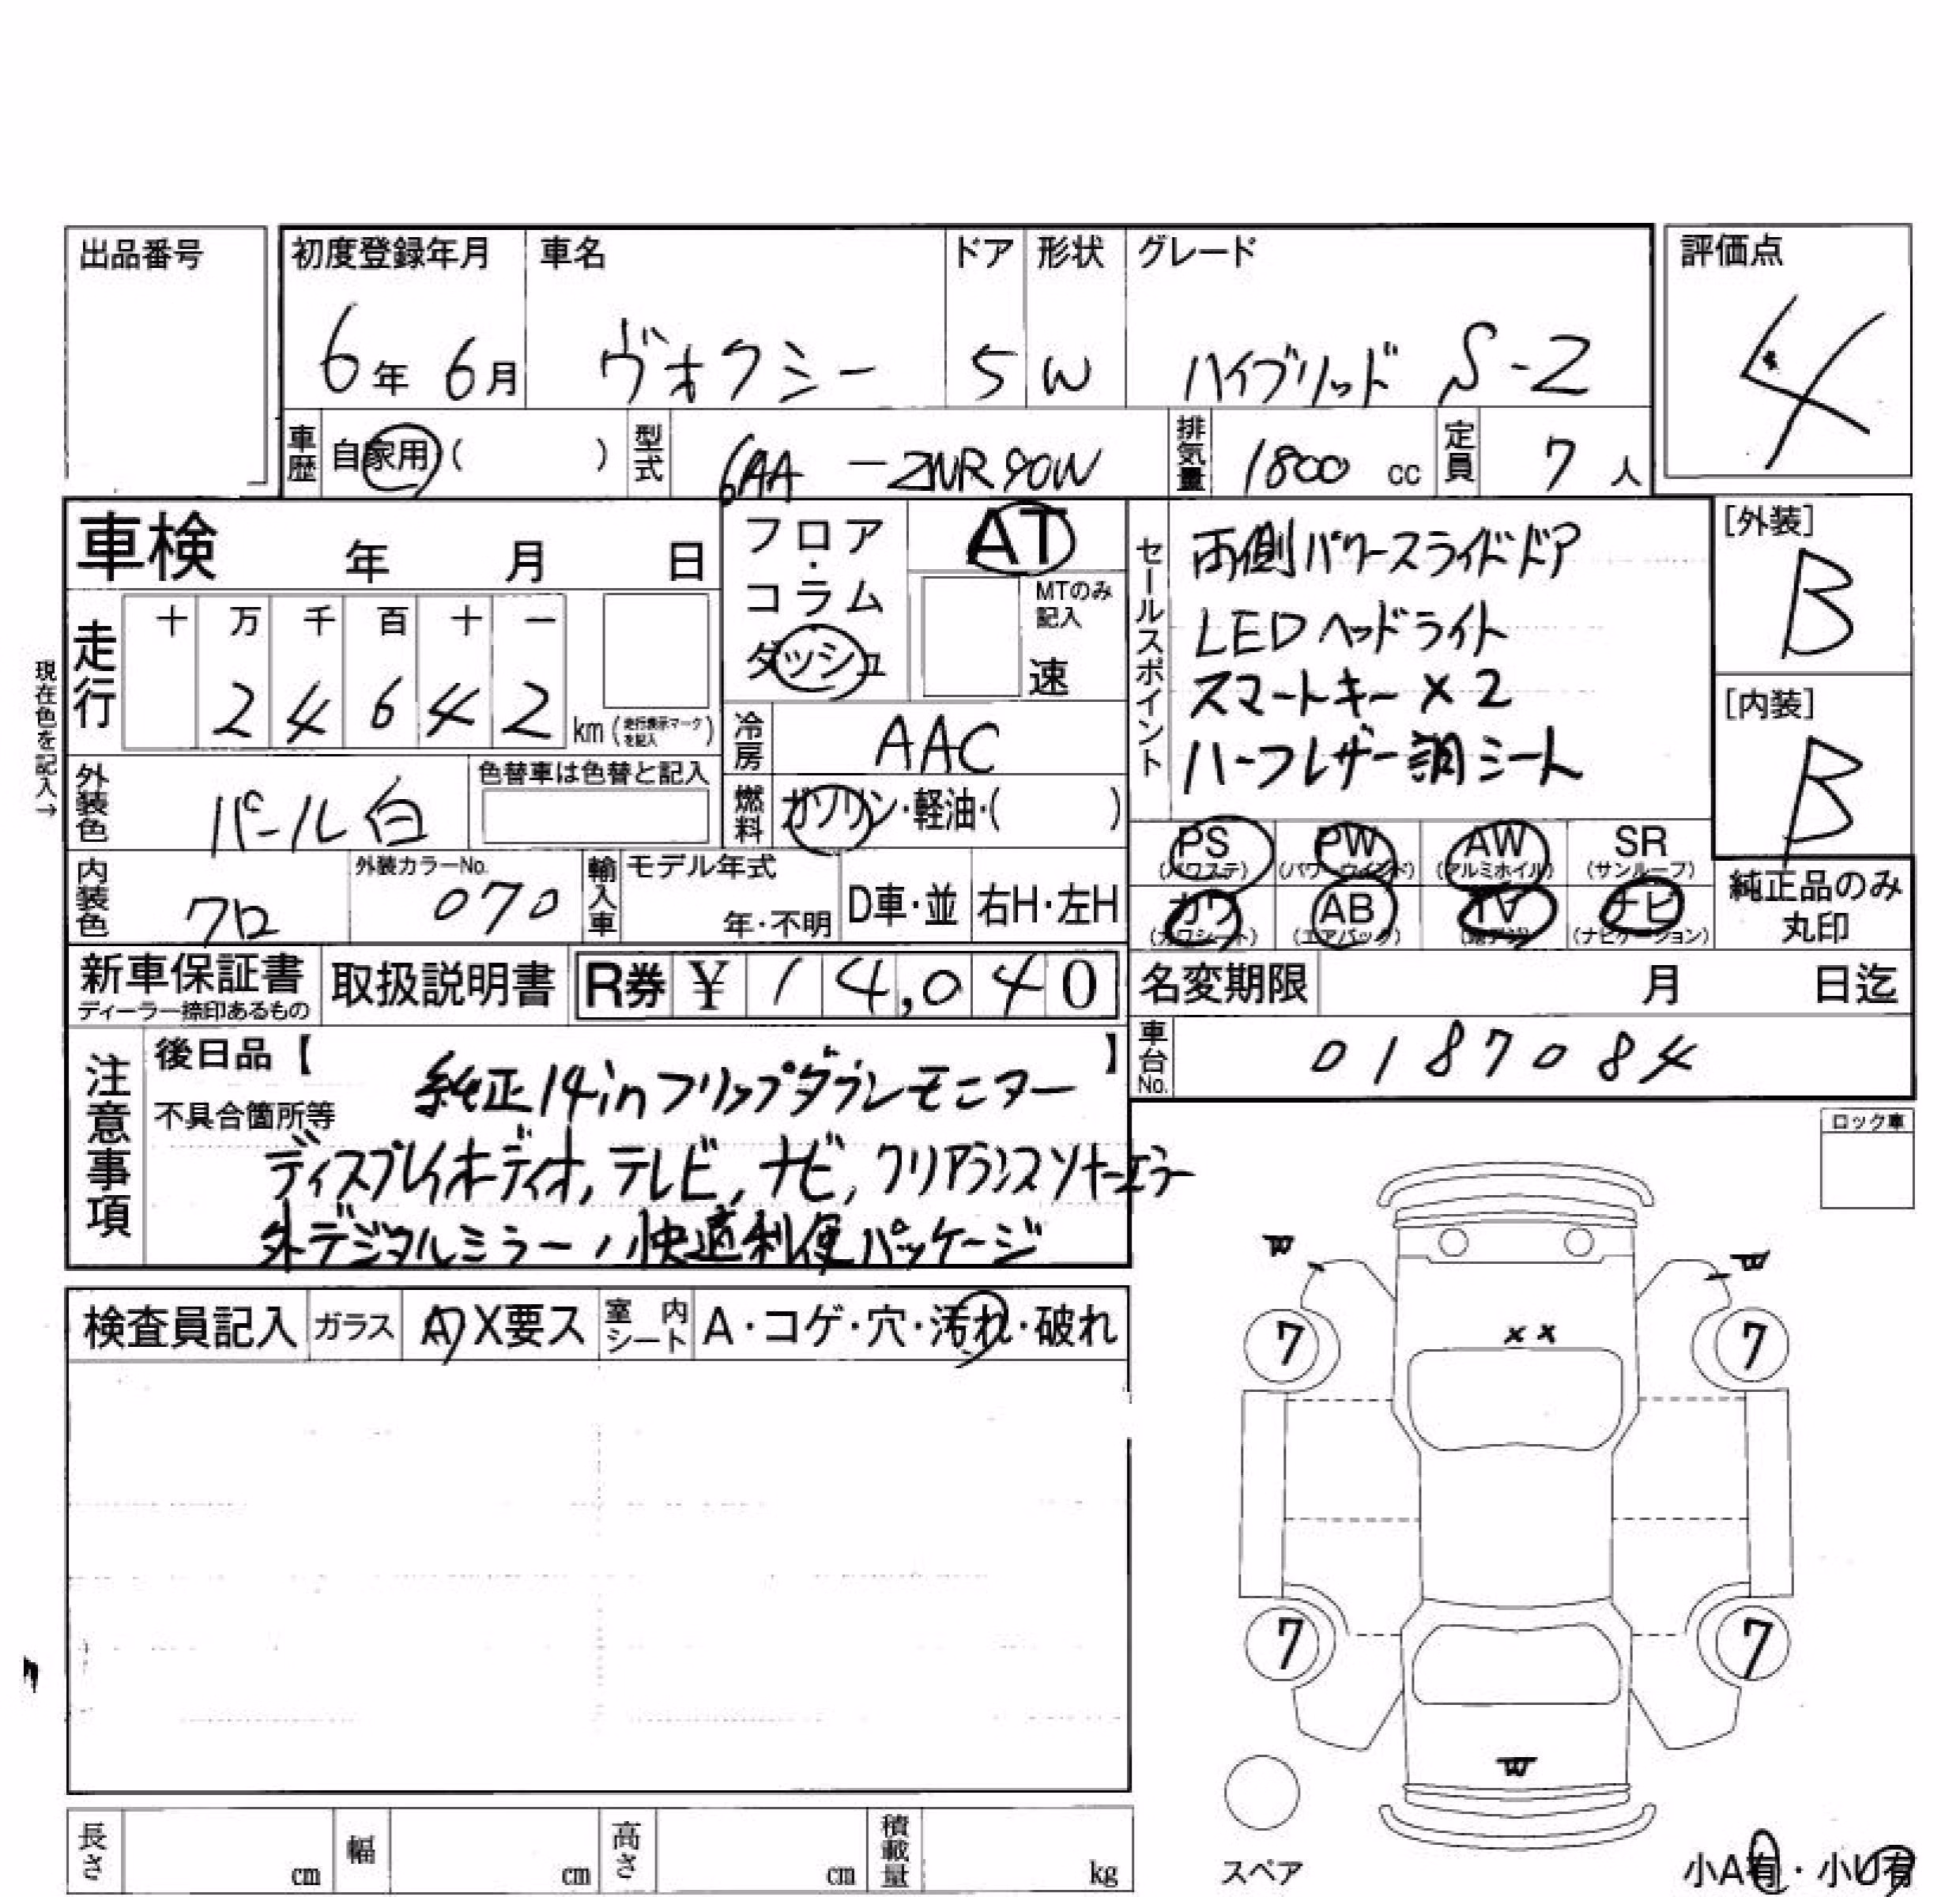 出品番号
初度登録年月 車名 ドア 形状 グレード 評価点
6年 6月 ヴォクシー 5 W ハイブリッド S-Z 4
車歴 自家用( ) 型式 6AA -ZWR90W 排気量 1800 cc 定員 7 人
車検 年 月 日
フロア・コラム ダッシュ AT
MTのみ記入 速
セールスポイント
両側パワースライドドア
LEDヘッドライト
スマートキー×2
ハーフレザー調シート
[外装] B
[内装] B
現在色を記入→
走行 十 万 千 百 十 一
2 4 6 4 2 km (走行表示マークを記入)
冷房 AAC
燃料 ガソリン・軽油・( )
外装色 パール白 色替車は色替と記入
内装色 クロ 外装カラーNo. 070 輸入車 モデル年式 年・不明 D車・並 右H・左H
PS (パワステ) PW (パワーウインド) AW (アルミホイル) SR (サンルーフ)
カワ (カワシート) AB (エアバック) TV (地デジ) ナビ (ナビゲーション)
純正品のみ丸印
新車保証書 ディーラー捺印あるもの 取扱説明書 R券 ¥ 14,040
名変期限 月 日迄
車台No. 0187084
注意事項
後日品【 】
不具合箇所等
純正14inフリップダウンモニター
ディスプレイオーディオ,テレビ,ナビ,クリアランスソナーエラー
外デジタルミラー,快適利便パッケージ
ロック車
検査員記入 ガラス A X要ス 室内シート A・コゲ・穴・汚れ・破れ
W W
7 × × 7
7 7
W
スペア
小A有・小U有
長さ cm 幅 cm 高さ cm 積載量 kg